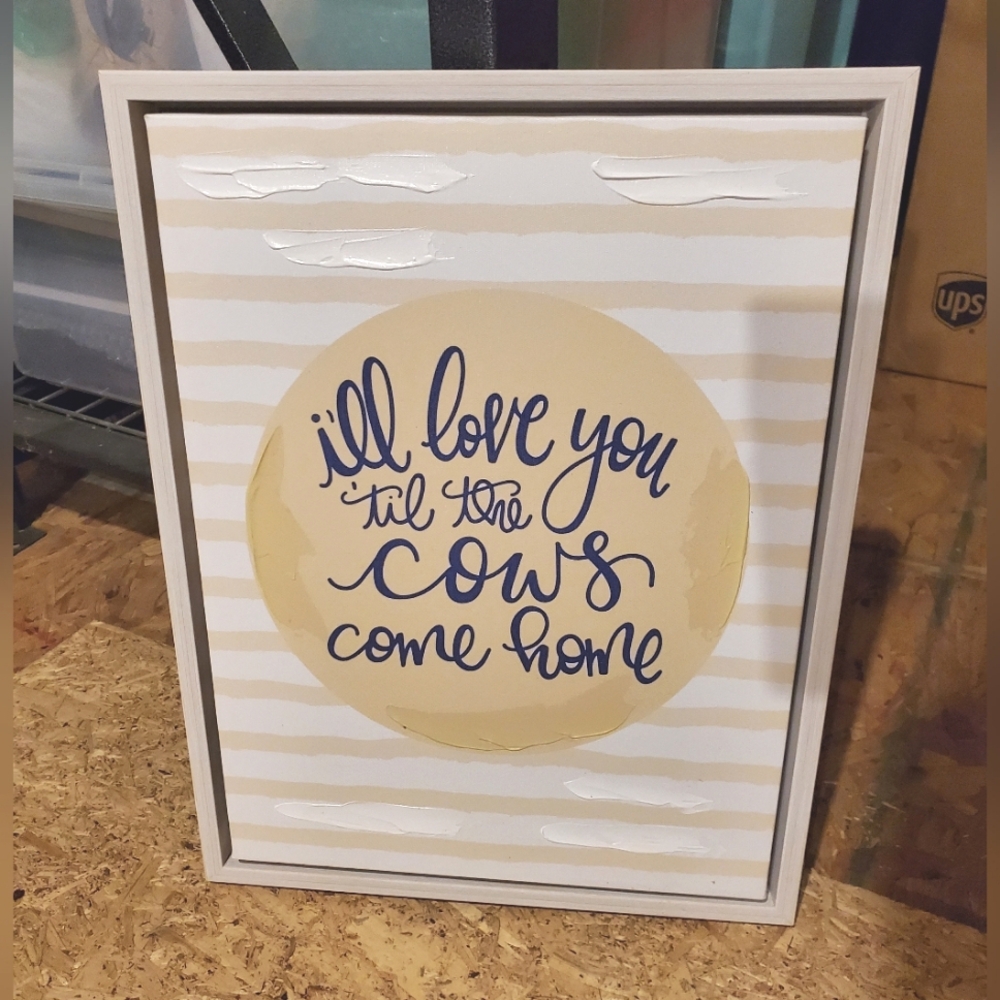 i'll love you
'til the
cows
come home
ups